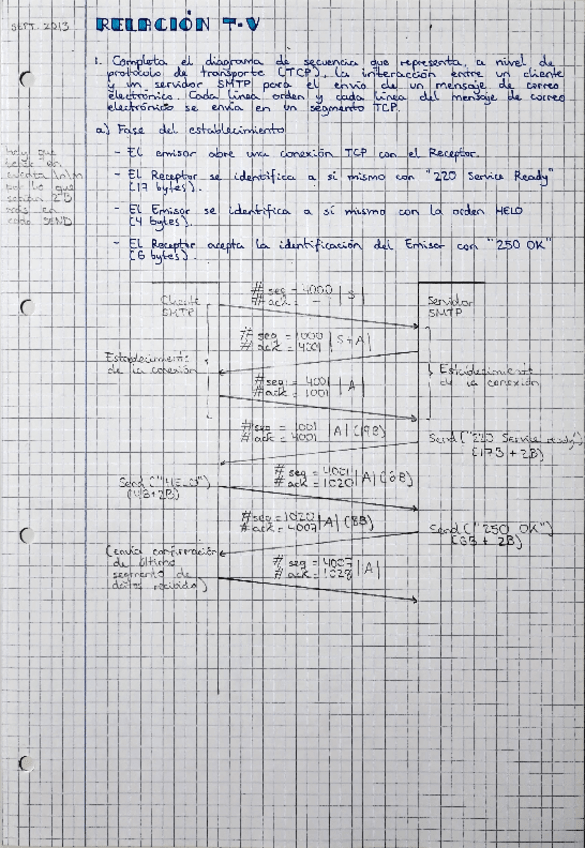 SEPT. 2013
RELACIÓN T-V
1. Completa el diagrama de secuencia que representa, a nivel de
protocolo de transporte (TCP), la interacción entre un cliente
y un servidor SMTP para el envío de un mensaje de correo
electrónico. Cada línea orden y cada línea del mensaje de correo
electrónico se envía en un segmento TCP.
a) Fase del establecimiento
- El emisor abre una conexión TCP con el Receptor.
hay que
tener en
cuenta \n\n
por lo que
serían 2B
más en
cada SEND
- El Receptor se identifica a sí mismo con "220 Service Ready"
(17 bytes).
- El Emisor se identifica a sí mismo con la orden HELO
(4 bytes).
- El Receptor acepta la identificación del Emisor con "250 OK"
(6 bytes).
Cliente
SMTP
# seq = 4000 | S |
# ack = -
Servidor
SMTP
# seq = 1000 | S+A |
# ack = 4001
Establecimiento
de la conexión
Establecimiento
de la conexión
# seq = 4001 | A |
# ack = 1001
# seq = 1001 | A | (19B)
# ack = 4001
Send ("220 Service ready")
(17B + 2B)
# seq = 4001 | A | (6B)
# ack = 1020
Send ("HELO")
(4B+2B)
#seq = 1020 | A | (8B)
# ack = 4007
Send ("250 OK")
(6B + 2B)
(envía confirmación
de último
segmento de
datos recibido)
# seq = 4007 | A |
# ack = 1028